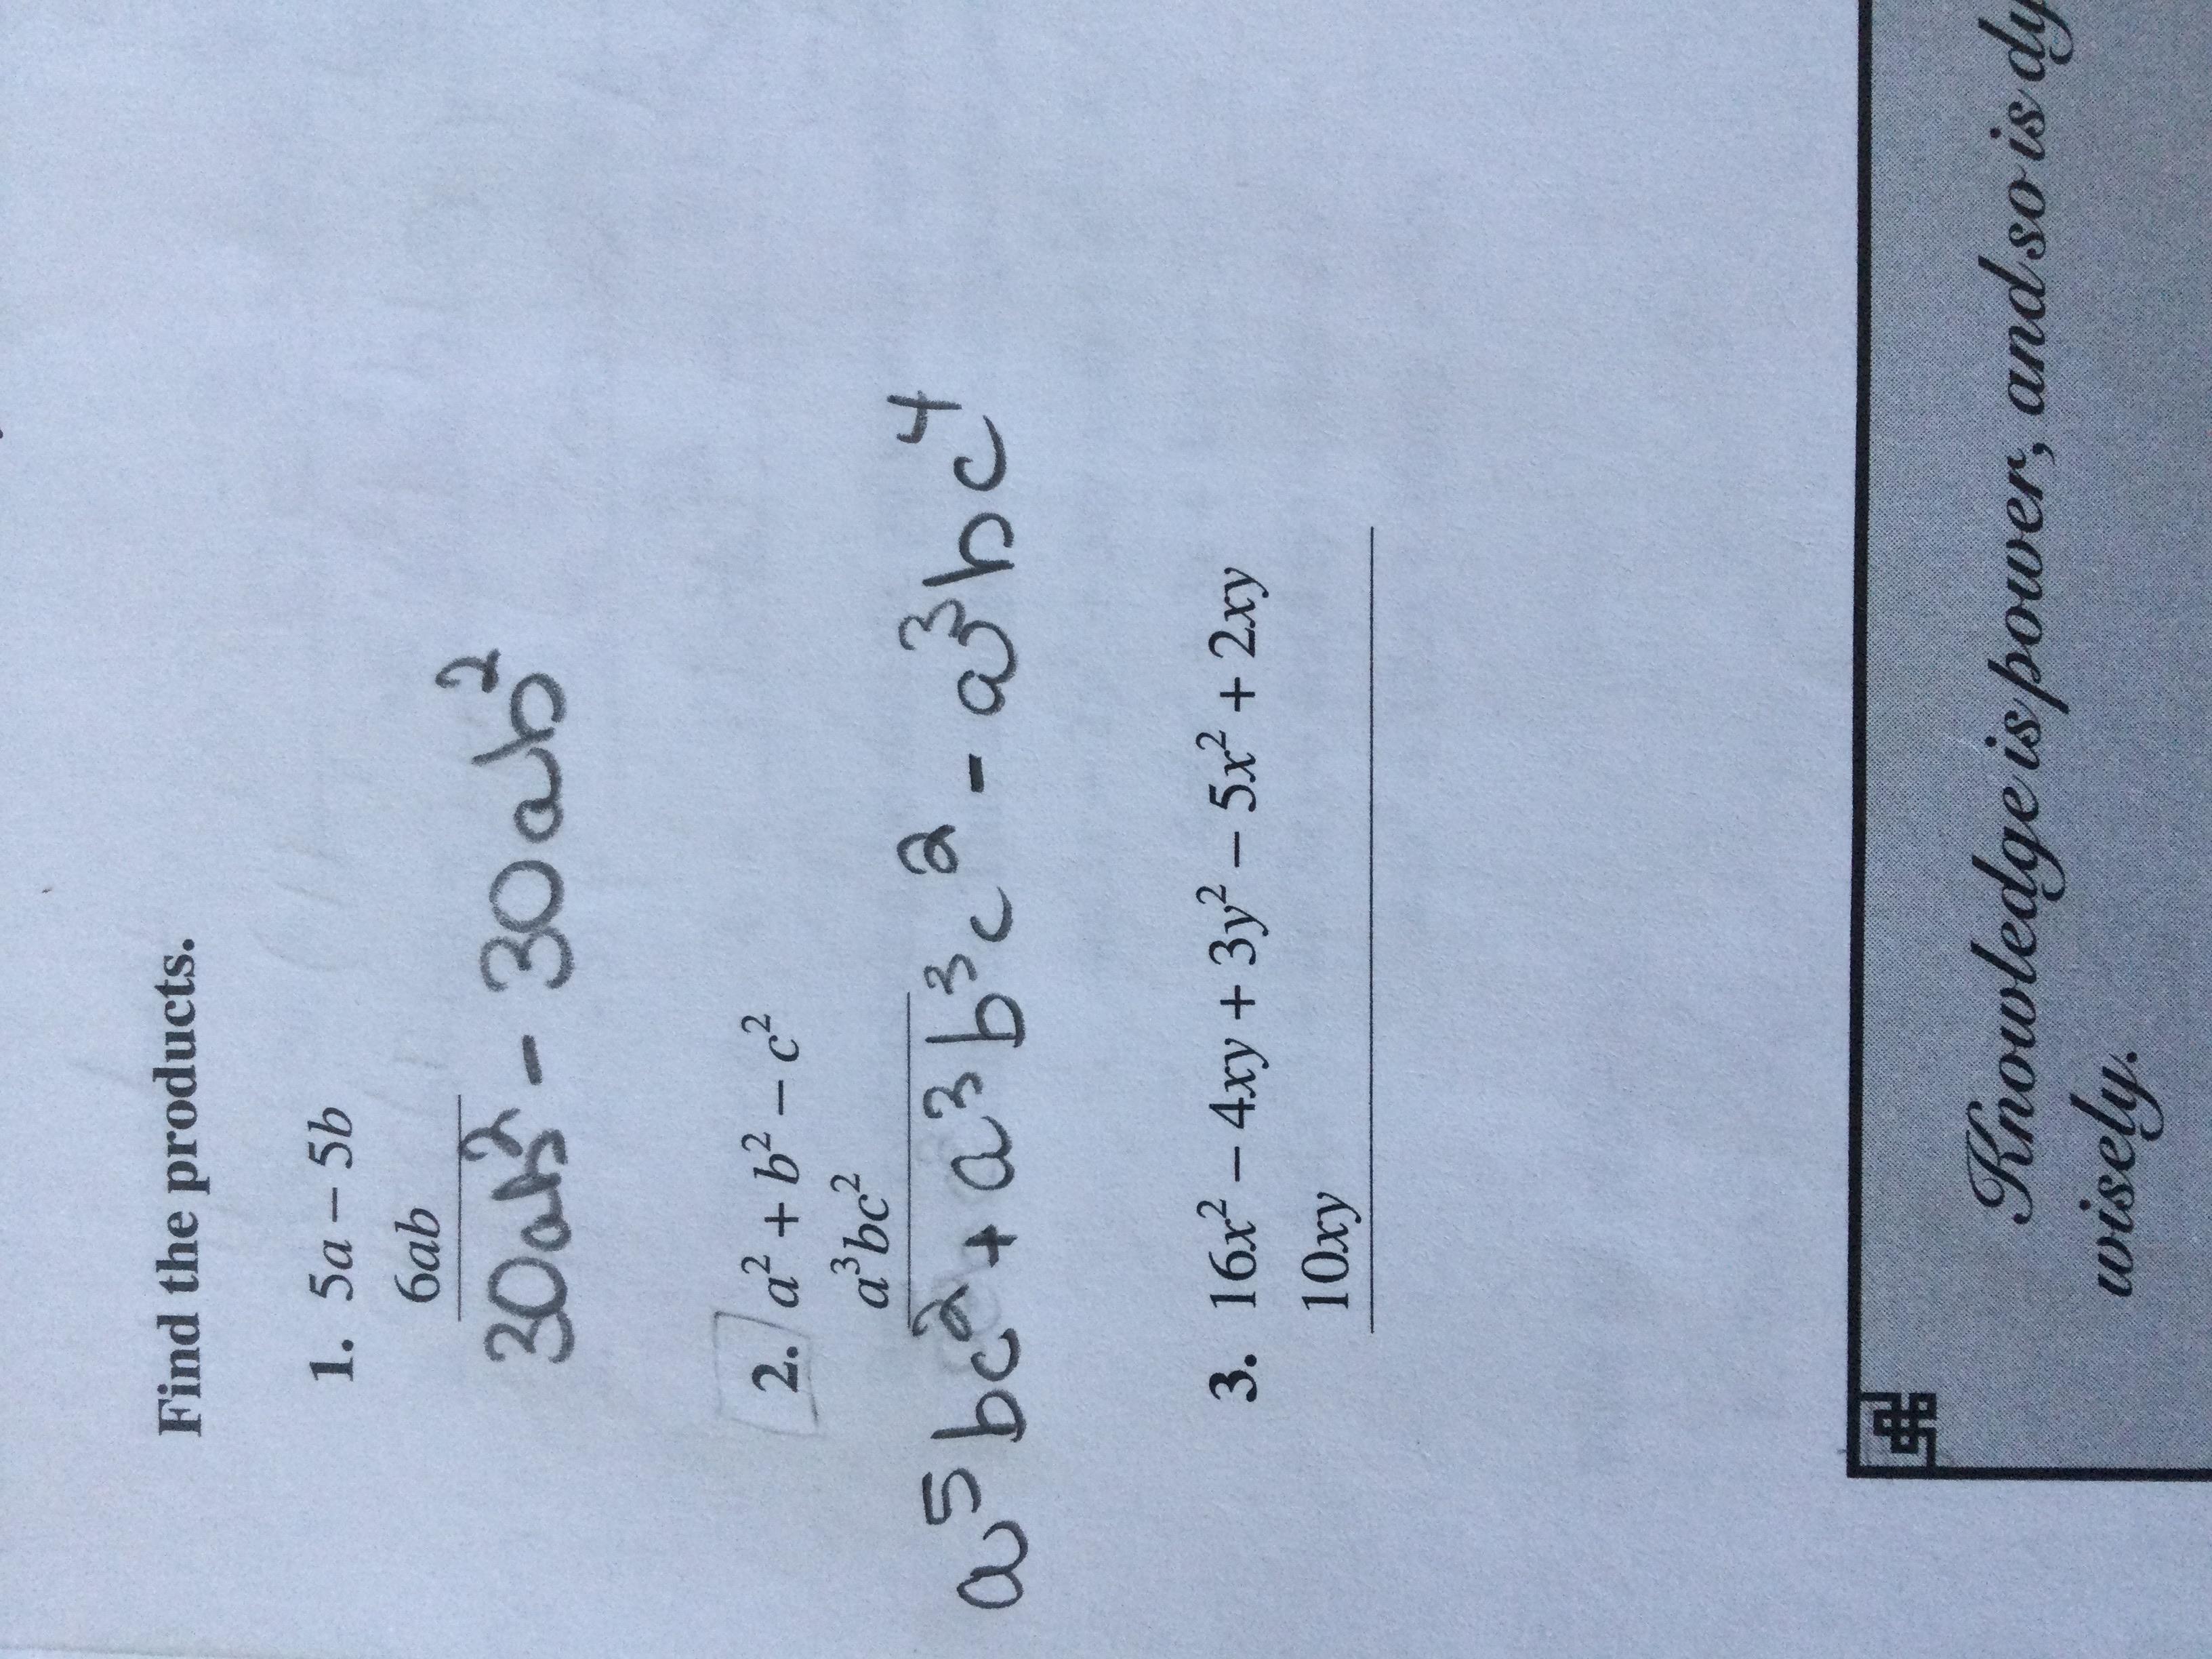 Find the products.
1. 5a – 5b
6ab
30ab² - 30ab²
2. a² + b² – c²
a³bc²
a⁵bc² + a³b³c² - a³bc⁴
3. 16x² – 4xy + 3y² – 5x² + 2xy
10xy
Knowledge is power, and so is
wisely.